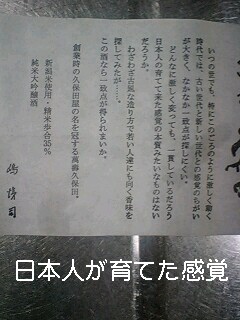 いつの世でも、特にこのごろのように激しく動く
時代では、古い世代と新しい世代との感覚のちがい
が大きく、なかなか一致点が探しにくい。
どんなに激しく変っても、一貫しているだろう
日本人の育てて来た感覚の本質みたいなものはない
だろうか。
わざわざ古風な造り方で若い人達にも向く香味を
探してみたが……。
この酒なら一致点が得られまいか。
創業時の久保田屋の名を冠する萬壽久保田。
新潟米使用・精米歩合35%
純米大吟醸酒
嶋 悌司
日本人が育てた感覚